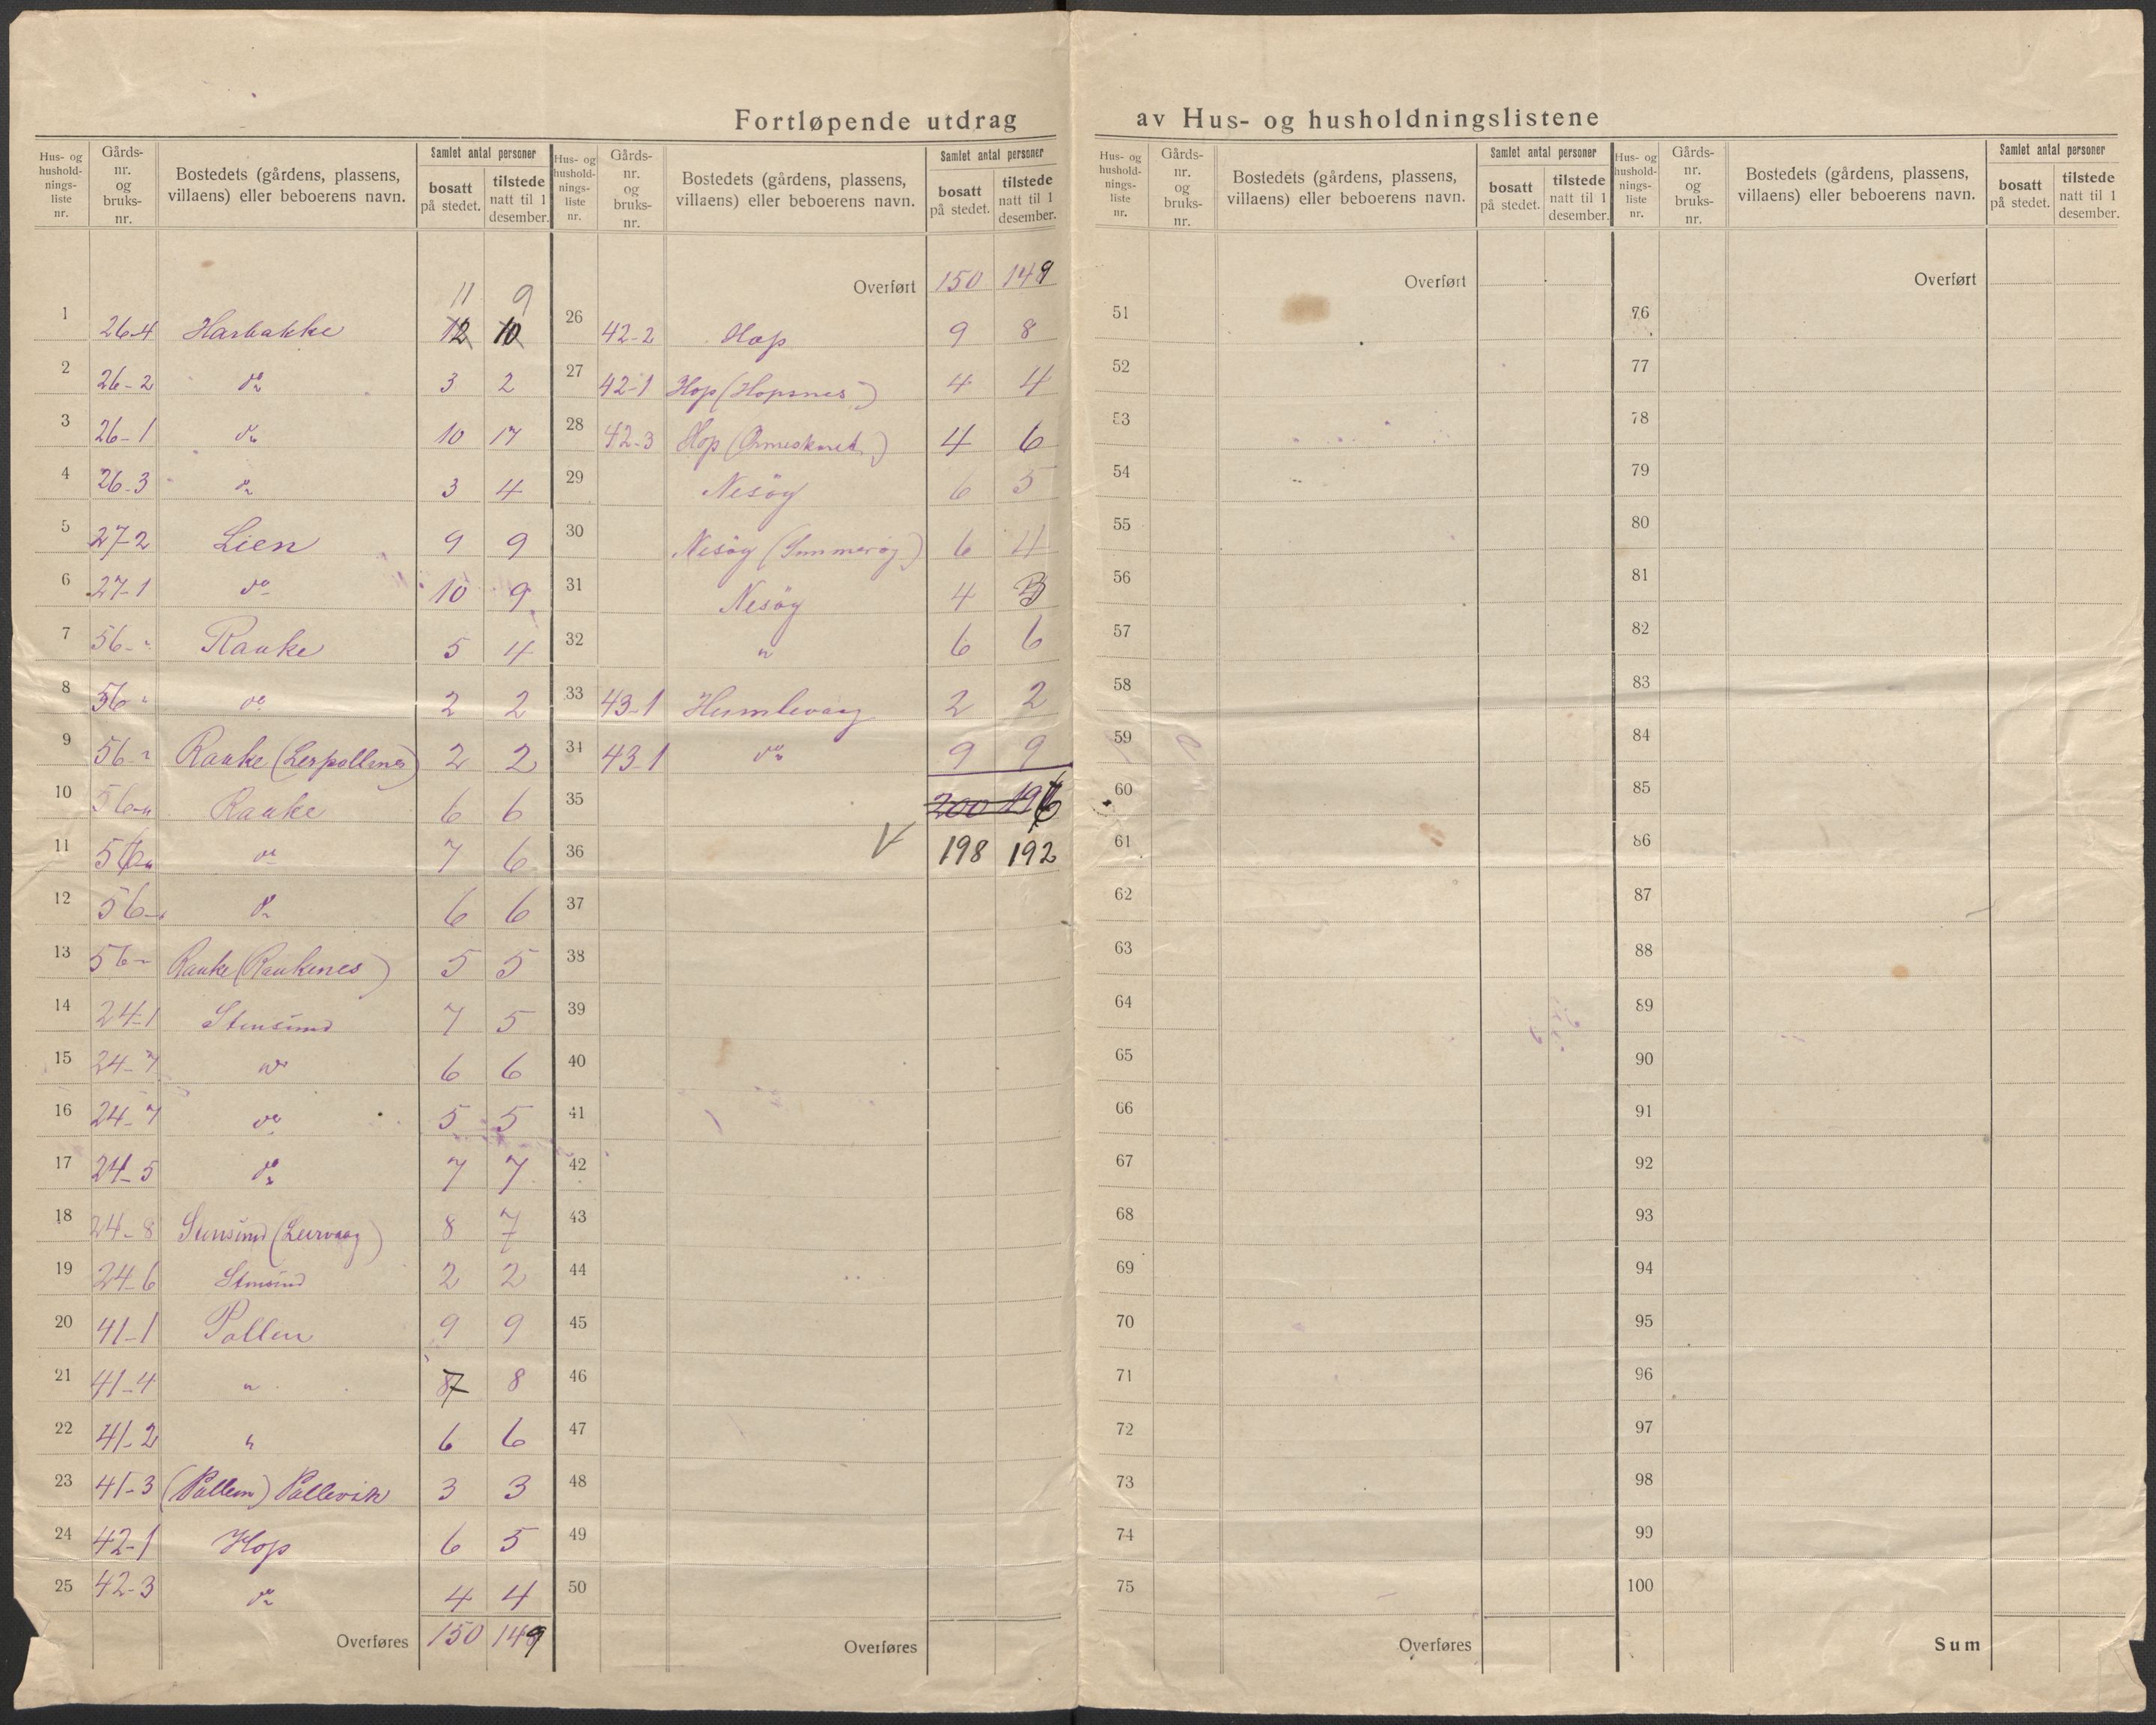 Fortløpende utdrag av Hus- og husholdningslistene
Hus- og hushold-nings-liste nr. Gårds-nr. og bruks-nr. Bostedets (gårdens, plassens, villaens) eller beboerens navn. Samlet antal personer bosatt på stedet. tilstede natt til 1 desember.
11 9
1 26-4 Harbakke 12 10
2 26-2 do 3 2
3 26-1 do 10 17
4 26-3 do 3 4
5 27-2 Lien 9 9
6 27-1 do 10 9
7 56-" Raake 5 4
8 56 " do 2 2
9 56-" Raake (Lerpollenes) 2 2
10 56-" Raake 6 6
11 56-" do 7 6
12 56-" do 6 6
13 56-" Raake (Raakenes) 5 5
14 24-1 Stensund 7 5
15 24-7 do 6 6
16 24-7 do 5 5
17 24-5 do 7 7
18 24-8 Stensund (Leirvaag) 8 7
19 24-6 Stensund 2 2
20 41-1 Pollen 9 9
21 41-4 " 7 8
22 41-2 " 6 6
23 41-3 (Pollen) Pollevik 3 3
24 42-1 Hop 6 5
25 42-3 do 4 4
Overføres 150 149
Hus- og hushold-nings-liste nr. Gårds-nr. og bruks-nr. Bostedets (gårdens, plassens, villaens) eller beboerens navn. Samlet antal personer bosatt på stedet. tilstede natt til 1 desember.
Overført 150 149
26 42-2 Hop 9 8
27 42-1 Hop (Hopsnes) 4 4
28 42-3 Hop 4 6
29 Nesöy 6 5
30 Nesöy 6 4
31 Nesöy 4 3
32 " 6 6
33 43-1 Humlevaag 2 2
34 43-1 do 9 9
35 200 196
36 V 198 192
37
38
39
40
41
42
43
44
45
46
47
48
49
50
Overføres
Hus- og hushold-nings-liste nr. Gårds-nr. og bruks-nr. Bostedets (gårdens, plassens, villaens) eller beboerens navn. Samlet antal personer bosatt på stedet. tilstede natt til 1 desember.
Overført
51
52
53
54
55
56
57
58
59
60
61
62
63
64
65
66
67
68
69
70
71
72
73
74
75
Overføres
Hus- og hushold-nings-liste nr. Gårds-nr. og bruks-nr. Bostedets (gårdens, plassens, villaens) eller beboerens navn. Samlet antal personer bosatt på stedet. tilstede natt til 1 desember.
Overført
76
77
78
79
80
81
82
83
84
85
86
87
88
89
90
91
92
93
94
95
96
97
98
99
100
Sum